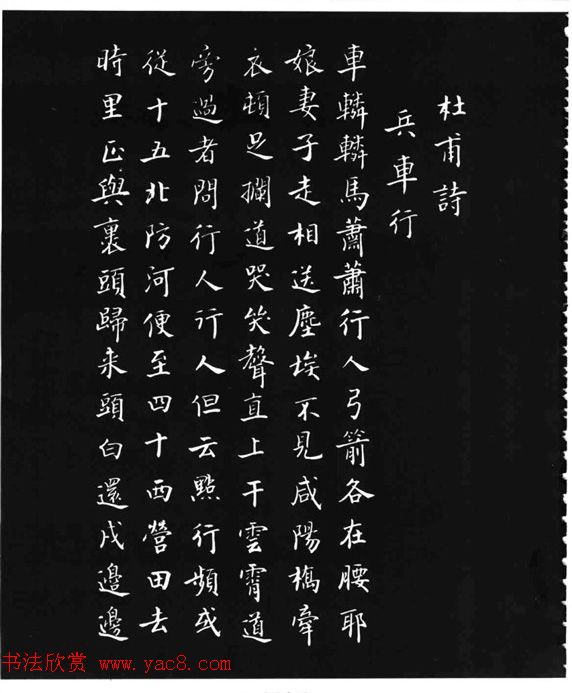 杜甫詩
兵車行
車轔轔馬蕭蕭行人弓箭各在腰耶
娘妻子走相送塵埃不見咸陽橋牽
衣頓足攔道哭哭聲直上干雲霄道
旁過者問行人行人但云點行頻或
從十五北防河便至四十西營田去
時里正與裹頭歸来頭白還戍邊邊
书法欣赏 www.yac8.com